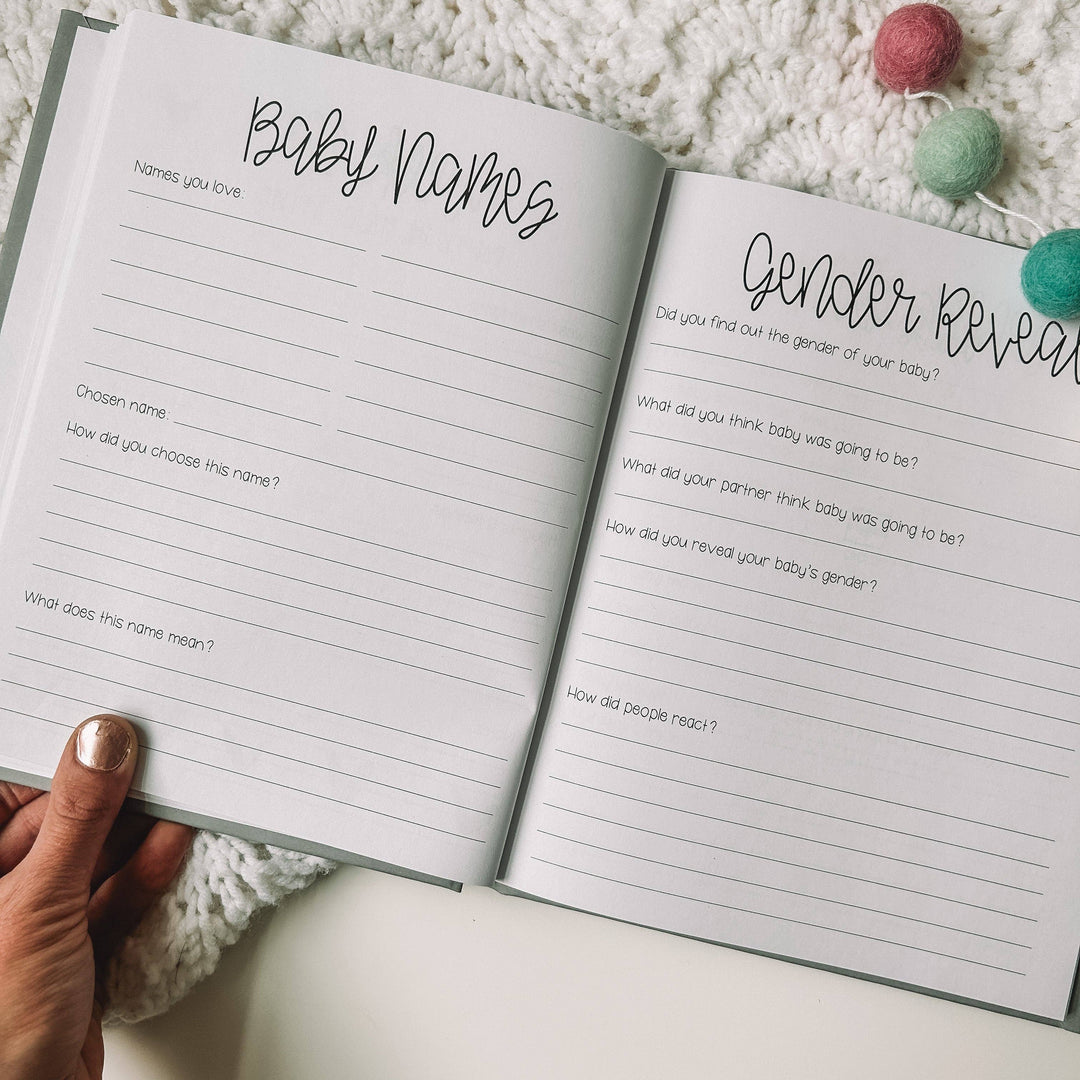 Baby Names
Names you love:
Chosen name:
How did you choose this name?
What does this name mean?
Gender Reveal
Did you find out the gender of your baby?
What did you think baby was going to be?
What did your partner think baby was going to be?
How did you reveal your baby's gender?
How did people react?